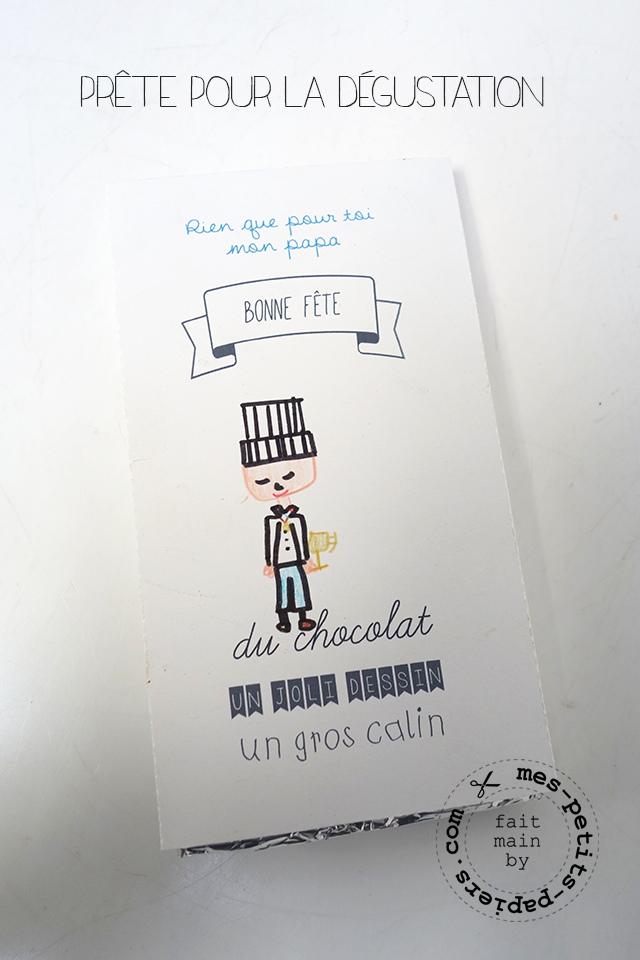 PRÊTE POUR LA DÉGUSTATION
Rien que pour toi
mon papa
BONNE FÊTE
du chocolat
UN JOLI DESSIN
un gros calin
mes-petits-papiers.com
fait
main
by